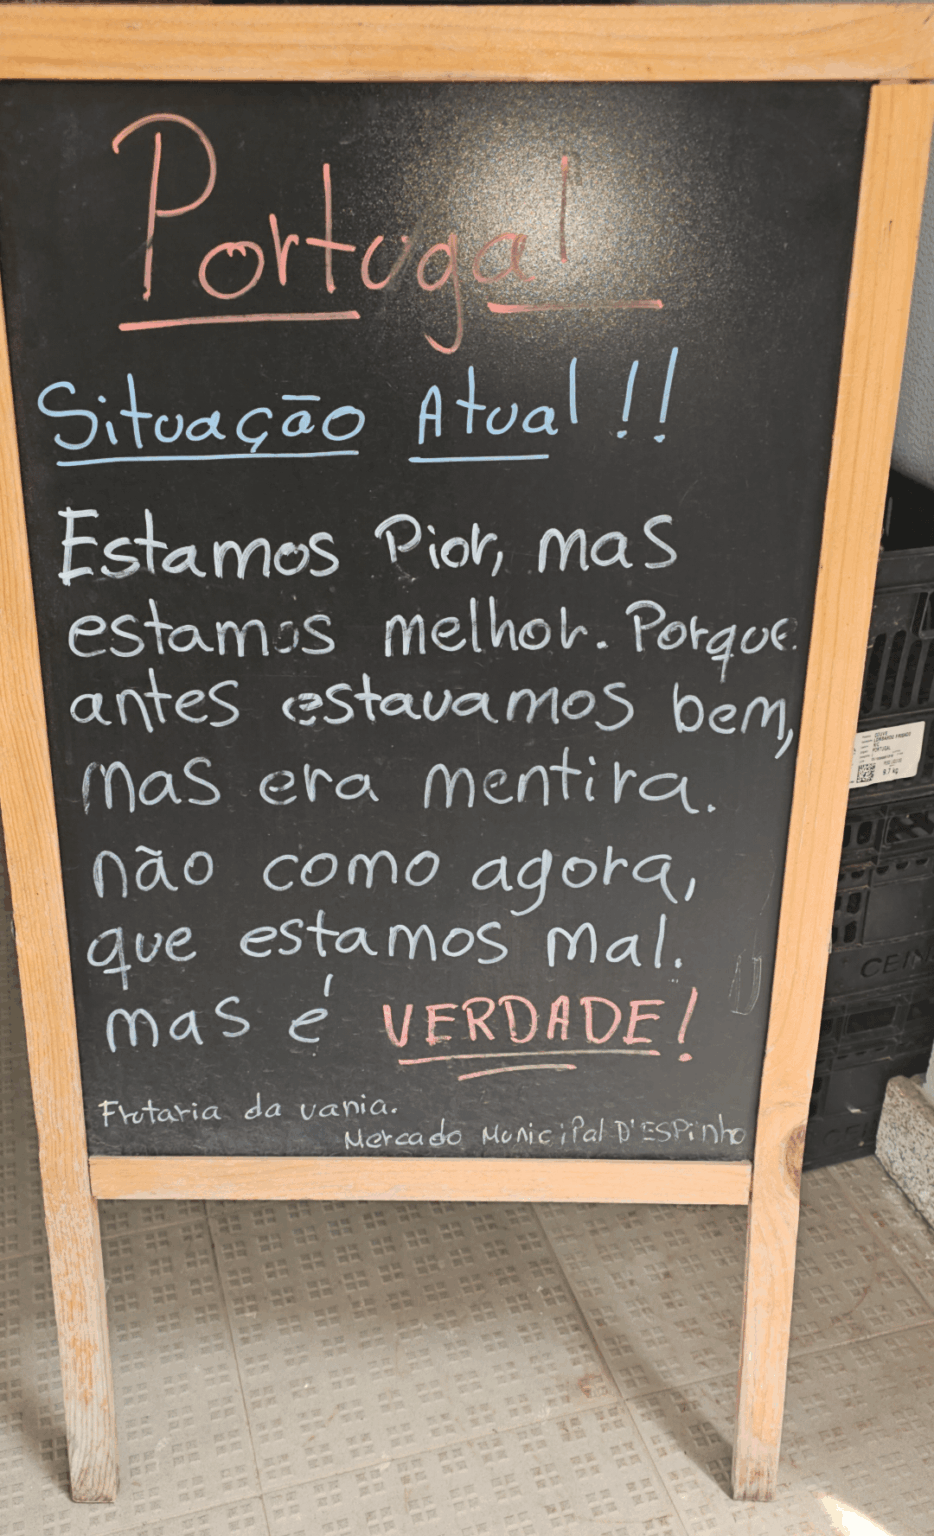 Portugal
Situação Atual!!
Estamos Pior, mas
estamos melhor. Porque
antes estavamos bem,
mas era mentira.
não como agora,
que estamos mal.
mas é VERDADE!
Frutaria da vania.
Mercado MunicipaL D'ESPinho
CEIN